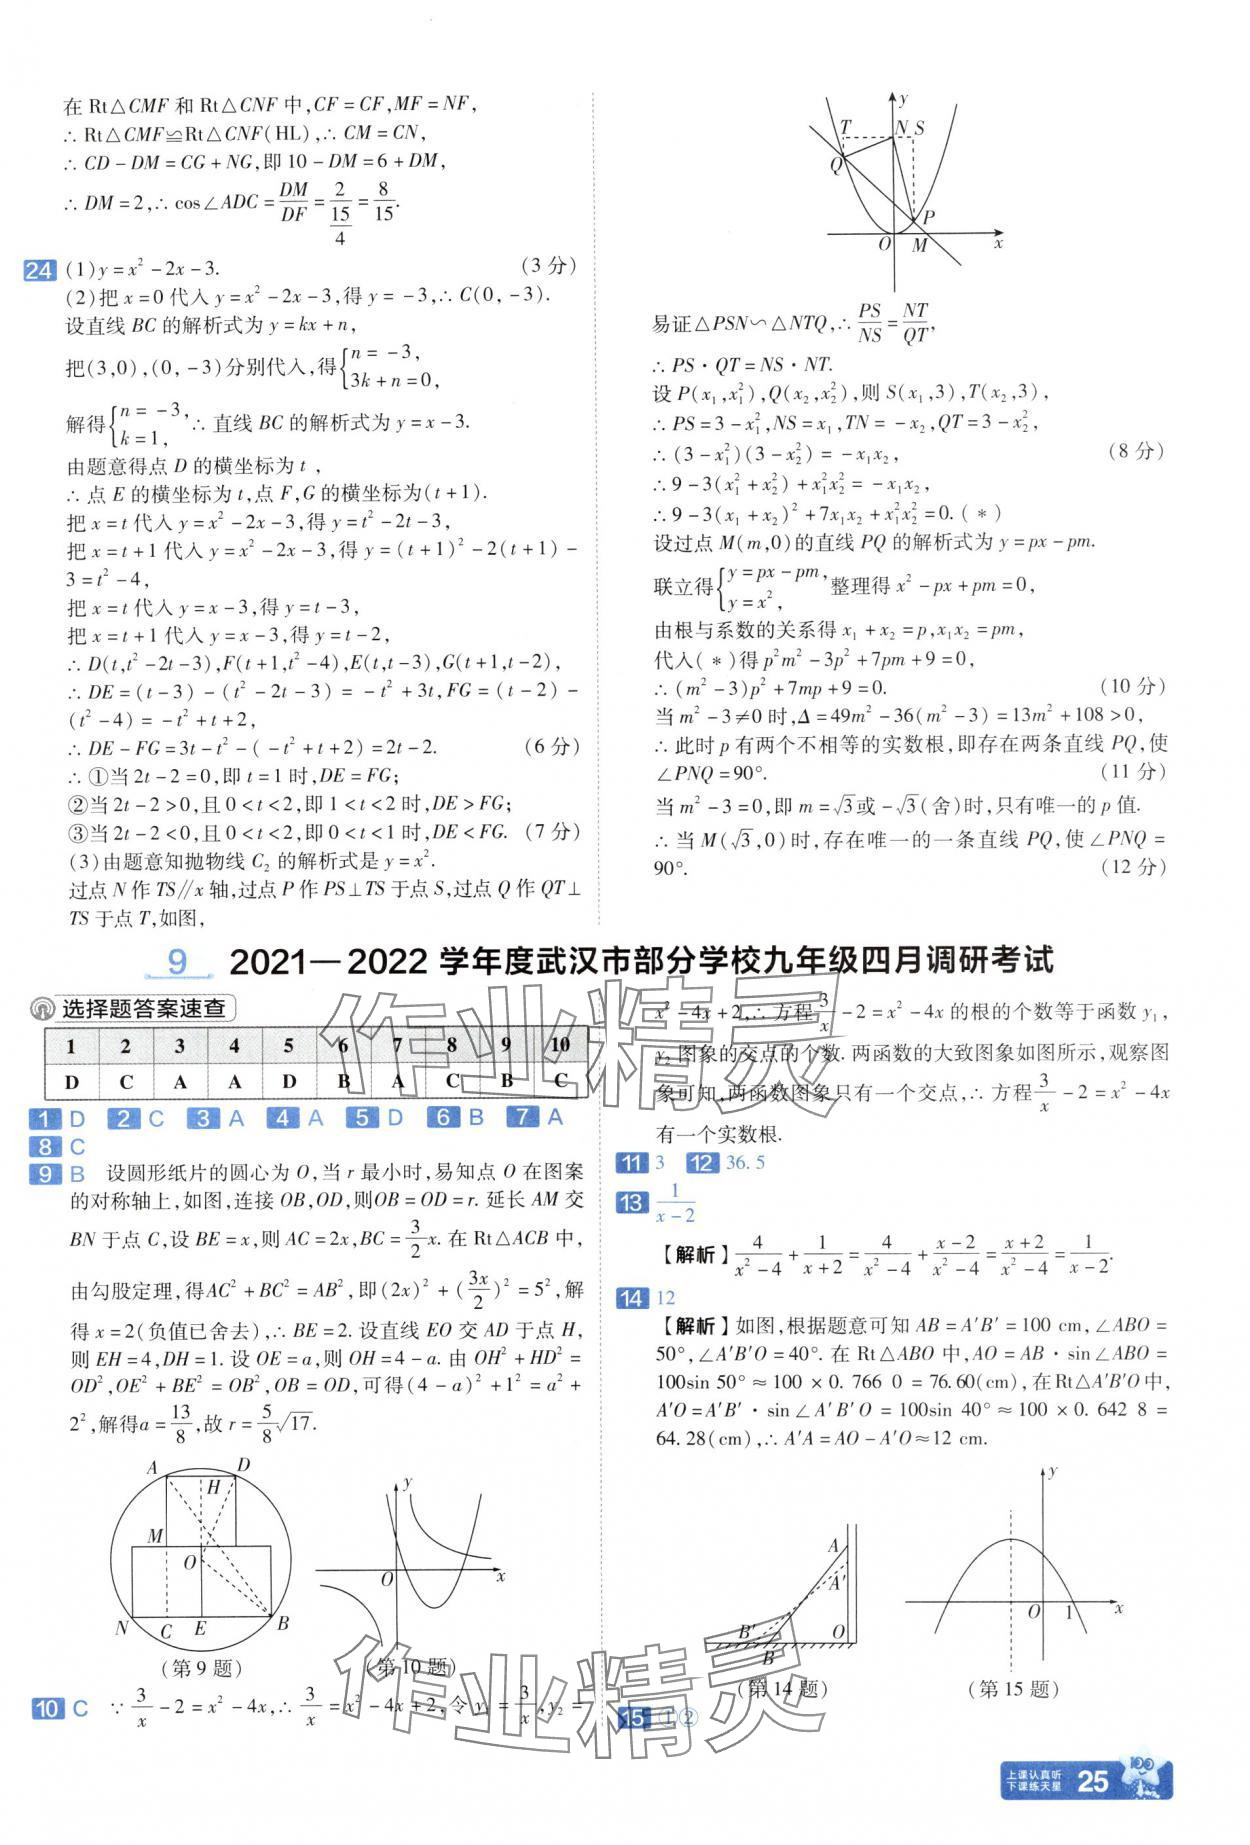 在 Rt△CMF 和 Rt△CNF 中,CF = CF,MF = NF,
∴ Rt△CMF≌Rt△CNF(HL),∴ CM = CN,
∴ CD - DM = CG + NG,即 10 - DM = 6 + DM,
∴ DM = 2,∴ cos∠ADC = DM/DF = 2/(15/4) = 8/15.
24 (1)y = x² - 2x - 3. (3 分)
(2)把 x = 0 代入 y = x² - 2x - 3,得 y = - 3,∴ C(0, - 3).
设直线 BC 的解析式为 y = kx + n,
把(3,0),(0, - 3)分别代入,得{n = - 3, 3k + n = 0,
解得{n = - 3, k = 1, ∴ 直线 BC 的解析式为 y = x - 3.
由题意得点 D 的横坐标为 t ,
∴ 点 E 的横坐标为 t,点 F,G 的横坐标为(t + 1).
把 x = t 代入 y = x² - 2x - 3,得 y = t² - 2t - 3,
把 x = t + 1 代入 y = x² - 2x - 3,得 y = (t + 1)² - 2(t + 1) -
3 = t² - 4,
把 x = t 代入 y = x - 3,得 y = t - 3,
把 x = t + 1 代入 y = x - 3,得 y = t - 2,
∴ D(t,t² - 2t - 3),F(t + 1,t² - 4),E(t,t - 3),G(t + 1,t - 2),
∴ DE = (t - 3) - (t² - 2t - 3) = - t² + 3t,FG = (t - 2) -
(t² - 4) = - t² + t + 2,
∴ DE - FG = 3t - t² - ( - t² + t + 2) = 2t - 2. (6 分)
∴ ①当 2t - 2 = 0,即 t = 1 时,DE = FG;
②当 2t - 2 > 0,且 0 < t < 2,即 1 < t < 2 时,DE > FG;
③当 2t - 2 < 0,且 0 < t < 2,即 0 < t < 1 时,DE < FG. (7 分)
(3)由题意知抛物线 C₂ 的解析式是 y = x².
过点 N 作 TS∥x 轴,过点 P 作 PS⊥TS 于点 S,过点 Q 作 QT⊥
TS 于点 T,如图,
y
T N S
Q
P
O M x
易证△PSN∽△NTQ,∴ PS/NS = NT/QT,
∴ PS · QT = NS · NT.
设 P(x₁,x₁²),Q(x₂,x₂²),则 S(x₁,3),T(x₂,3),
∴ PS = 3 - x₁²,NS = x₁,TN = - x₂,QT = 3 - x₂²,
∴ (3 - x₁²)(3 - x₂²) = - x₁x₂, (8 分)
∴ 9 - 3(x₁² + x₂²) + x₁²x₂² = - x₁x₂,
∴ 9 - 3(x₁ + x₂)² + 7x₁x₂ + x₁²x₂² = 0. ( * )
设过点 M(m,0)的直线 PQ 的解析式为 y = px - pm.
联立得{y = px - pm, y = x², 整理得 x² - px + pm = 0,
由根与系数的关系得 x₁ + x₂ = p,x₁x₂ = pm,
代入( * )得 p²m² - 3p² + 7pm + 9 = 0,
∴ (m² - 3)p² + 7mp + 9 = 0. (10 分)
当 m² - 3≠0 时,Δ = 49m² - 36(m² - 3) = 13m² + 108 > 0,
∴ 此时 p 有两个不相等的实数根,即存在两条直线 PQ,使
∠PNQ = 90°. (11 分)
当 m² - 3 = 0,即 m = √3或 - √3(舍)时,只有唯一的 p 值.
∴ 当 M(√3,0)时,存在唯一的一条直线 PQ,使∠PNQ =
90°. (12 分)
9 2021—2022 学年度武汉市部分学校九年级四月调研考试
选择题答案速查
1 2 3 4 5 6 7 8 9 10
D C A A D B A C B C
1 D 2 C 3 A 4 A 5 D 6 B 7 A
8 C
9 B 设圆形纸片的圆心为 O,当 r 最小时,易知点 O 在图案
的对称轴上,如图,连接 OB,OD,则OB = OD = r. 延长 AM 交
BN 于点 C,设 BE = x,则 AC = 2x,BC = 3/2 x. 在 Rt△ACB 中,
由勾股定理,得AC² + BC² = AB²,即(2x)² + (3x/2)² = 5²,解
得 x = 2(负值已舍去),∴ BE = 2. 设直线 EO 交 AD 于点 H,
则 EH = 4,DH = 1. 设 OE = a,则 OH = 4 - a. 由 OH² + HD² =
OD²,OE² + BE² = OB²,OB = OD,可得(4 - a)² + 1² = a² +
2²,解得a = 13/8,故 r = 5/8 √17.
A H D
M
O
N C E B
(第 9 题)
y
O x
(第 10 题)
10 C ∵ 3/x - 2 = x² - 4x,∴ 3/x = x² - 4x + 2,令 y₁ = 3/x,y₂ =
x² - 4x + 2,∴ 方程 3/x - 2 = x² - 4x 的根的个数等于函数 y₁,
y₂ 图象的交点的个数. 两函数的大致图象如图所示,观察图
象可知,两函数图象只有一个交点,∴ 方程 3/x - 2 = x² - 4x
有一个实数根.
11 3 12 36.5
13 1/(x - 2)
【解析】4/(x² - 4) + 1/(x + 2) = 4/(x² - 4) + (x - 2)/(x² - 4) = (x + 2)/(x² - 4) = 1/(x - 2).
14 12
【解析】如图,根据题意可知 AB = A'B' = 100 cm,∠ABO =
50°,∠A'B'O = 40°. 在 Rt△ABO 中,AO = AB · sin∠ABO =
100sin 50°≈100 × 0. 766 0 = 76. 60(cm),在Rt△A'B'O中,
A'O = A'B' · sin∠A'B'O = 100sin 40°≈100 × 0. 642 8 =
64. 28(cm),∴ A'A = AO - A'O≈12 cm.
A
A'
B' B O
(第 14 题)
y
O 1 x
(第 15 题)
15 ①②
作业精灵
作业精灵
上课认真听
下课练天星
25
100